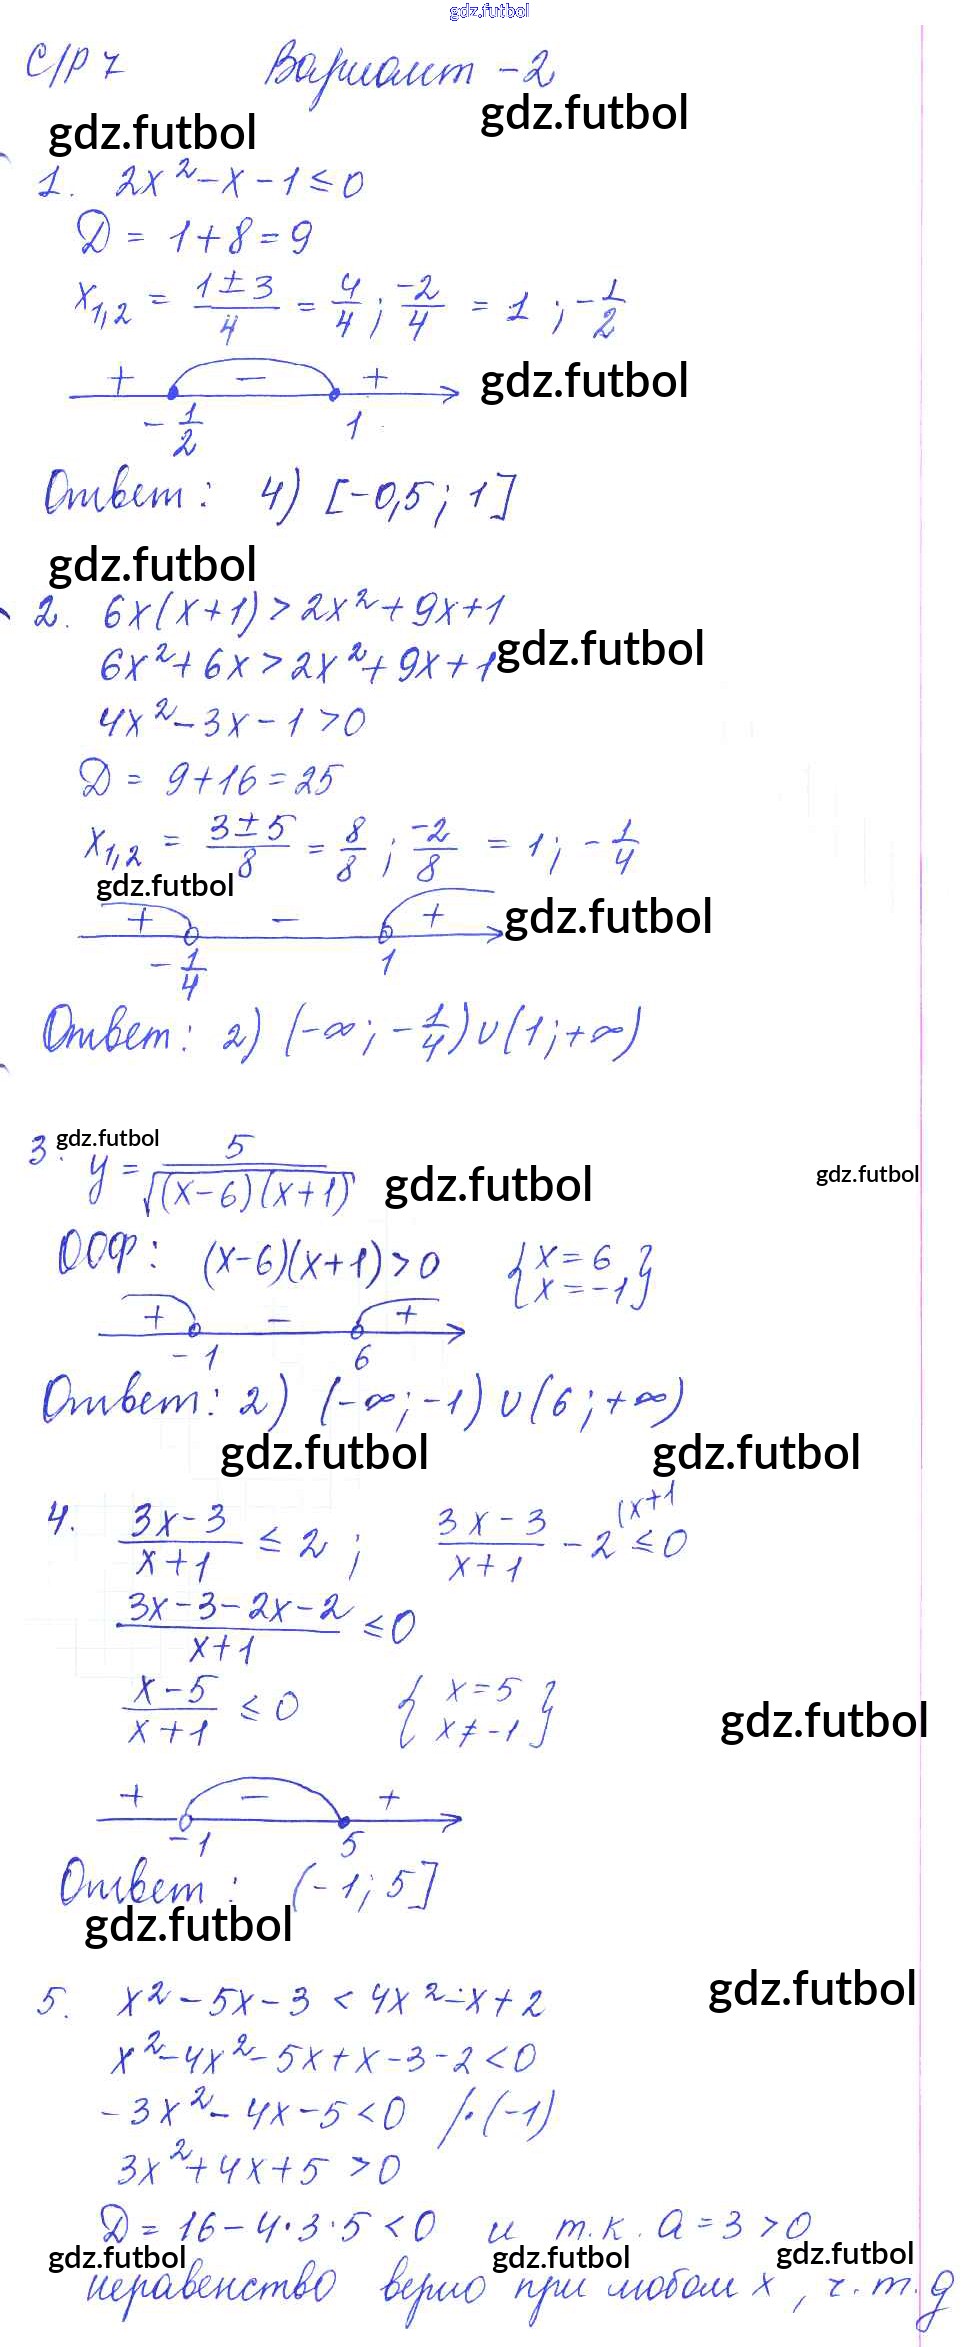 gdz.futbol
С/Р 7 Вариант -2
gdz.futbol gdz.futbol
1. 2x² - x - 1 ≤ 0
D = 1 + 8 = 9
x₁,₂ = (1 ± 3)/4 = 4/4 ; -2/4 = 1 ; -1/2
+ - + gdz.futbol
-1/2 1
Ответ: 4) [-0,5 ; 1]
gdz.futbol
2. 6x(x+1) > 2x² + 9x + 1
6x² + 6x > 2x² + 9x + 1 gdz.futbol
4x² - 3x - 1 > 0
D = 9 + 16 = 25
x₁,₂ = (3 ± 5)/8 = 8/8 ; -2/8 = 1 ; -1/4
gdz.futbol
+ - + gdz.futbol
-1/4 1
Ответ: 2) (-∞ ; -1/4) ∪ (1 ; +∞)
gdz.futbol
3. y = 5/√((x-6)(x+1)) gdz.futbol gdz.futbol
ООФ: (x-6)(x+1) > 0 { x = 6
x = -1 }
+ - +
-1 6
Ответ: 2) (-∞ ; -1) ∪ (6 ; +∞)
gdz.futbol gdz.futbol
4. (3x-3)/(x+1) ≤ 2 ; (3x-3)/(x+1) - 2 (x+1 ≤ 0
(3x-3-2x-2)/(x+1) ≤ 0
(x-5)/(x+1) ≤ 0 { x = 5
x ≠ -1 } gdz.futbol
+ - +
-1 5
Ответ: (-1 ; 5]
gdz.futbol
gdz.futbol
5. x² - 5x - 3 < 4x² - x + 2
x² - 4x² - 5x + x - 3 - 2 < 0
-3x² - 4x - 5 < 0 /·(-1)
3x² + 4x + 5 > 0
D = 16 - 4·3·5 < 0 и т.к. a = 3 > 0
gdz.futbol gdz.futbol gdz.futbol
неравенство верно при любом x, ч.т.д